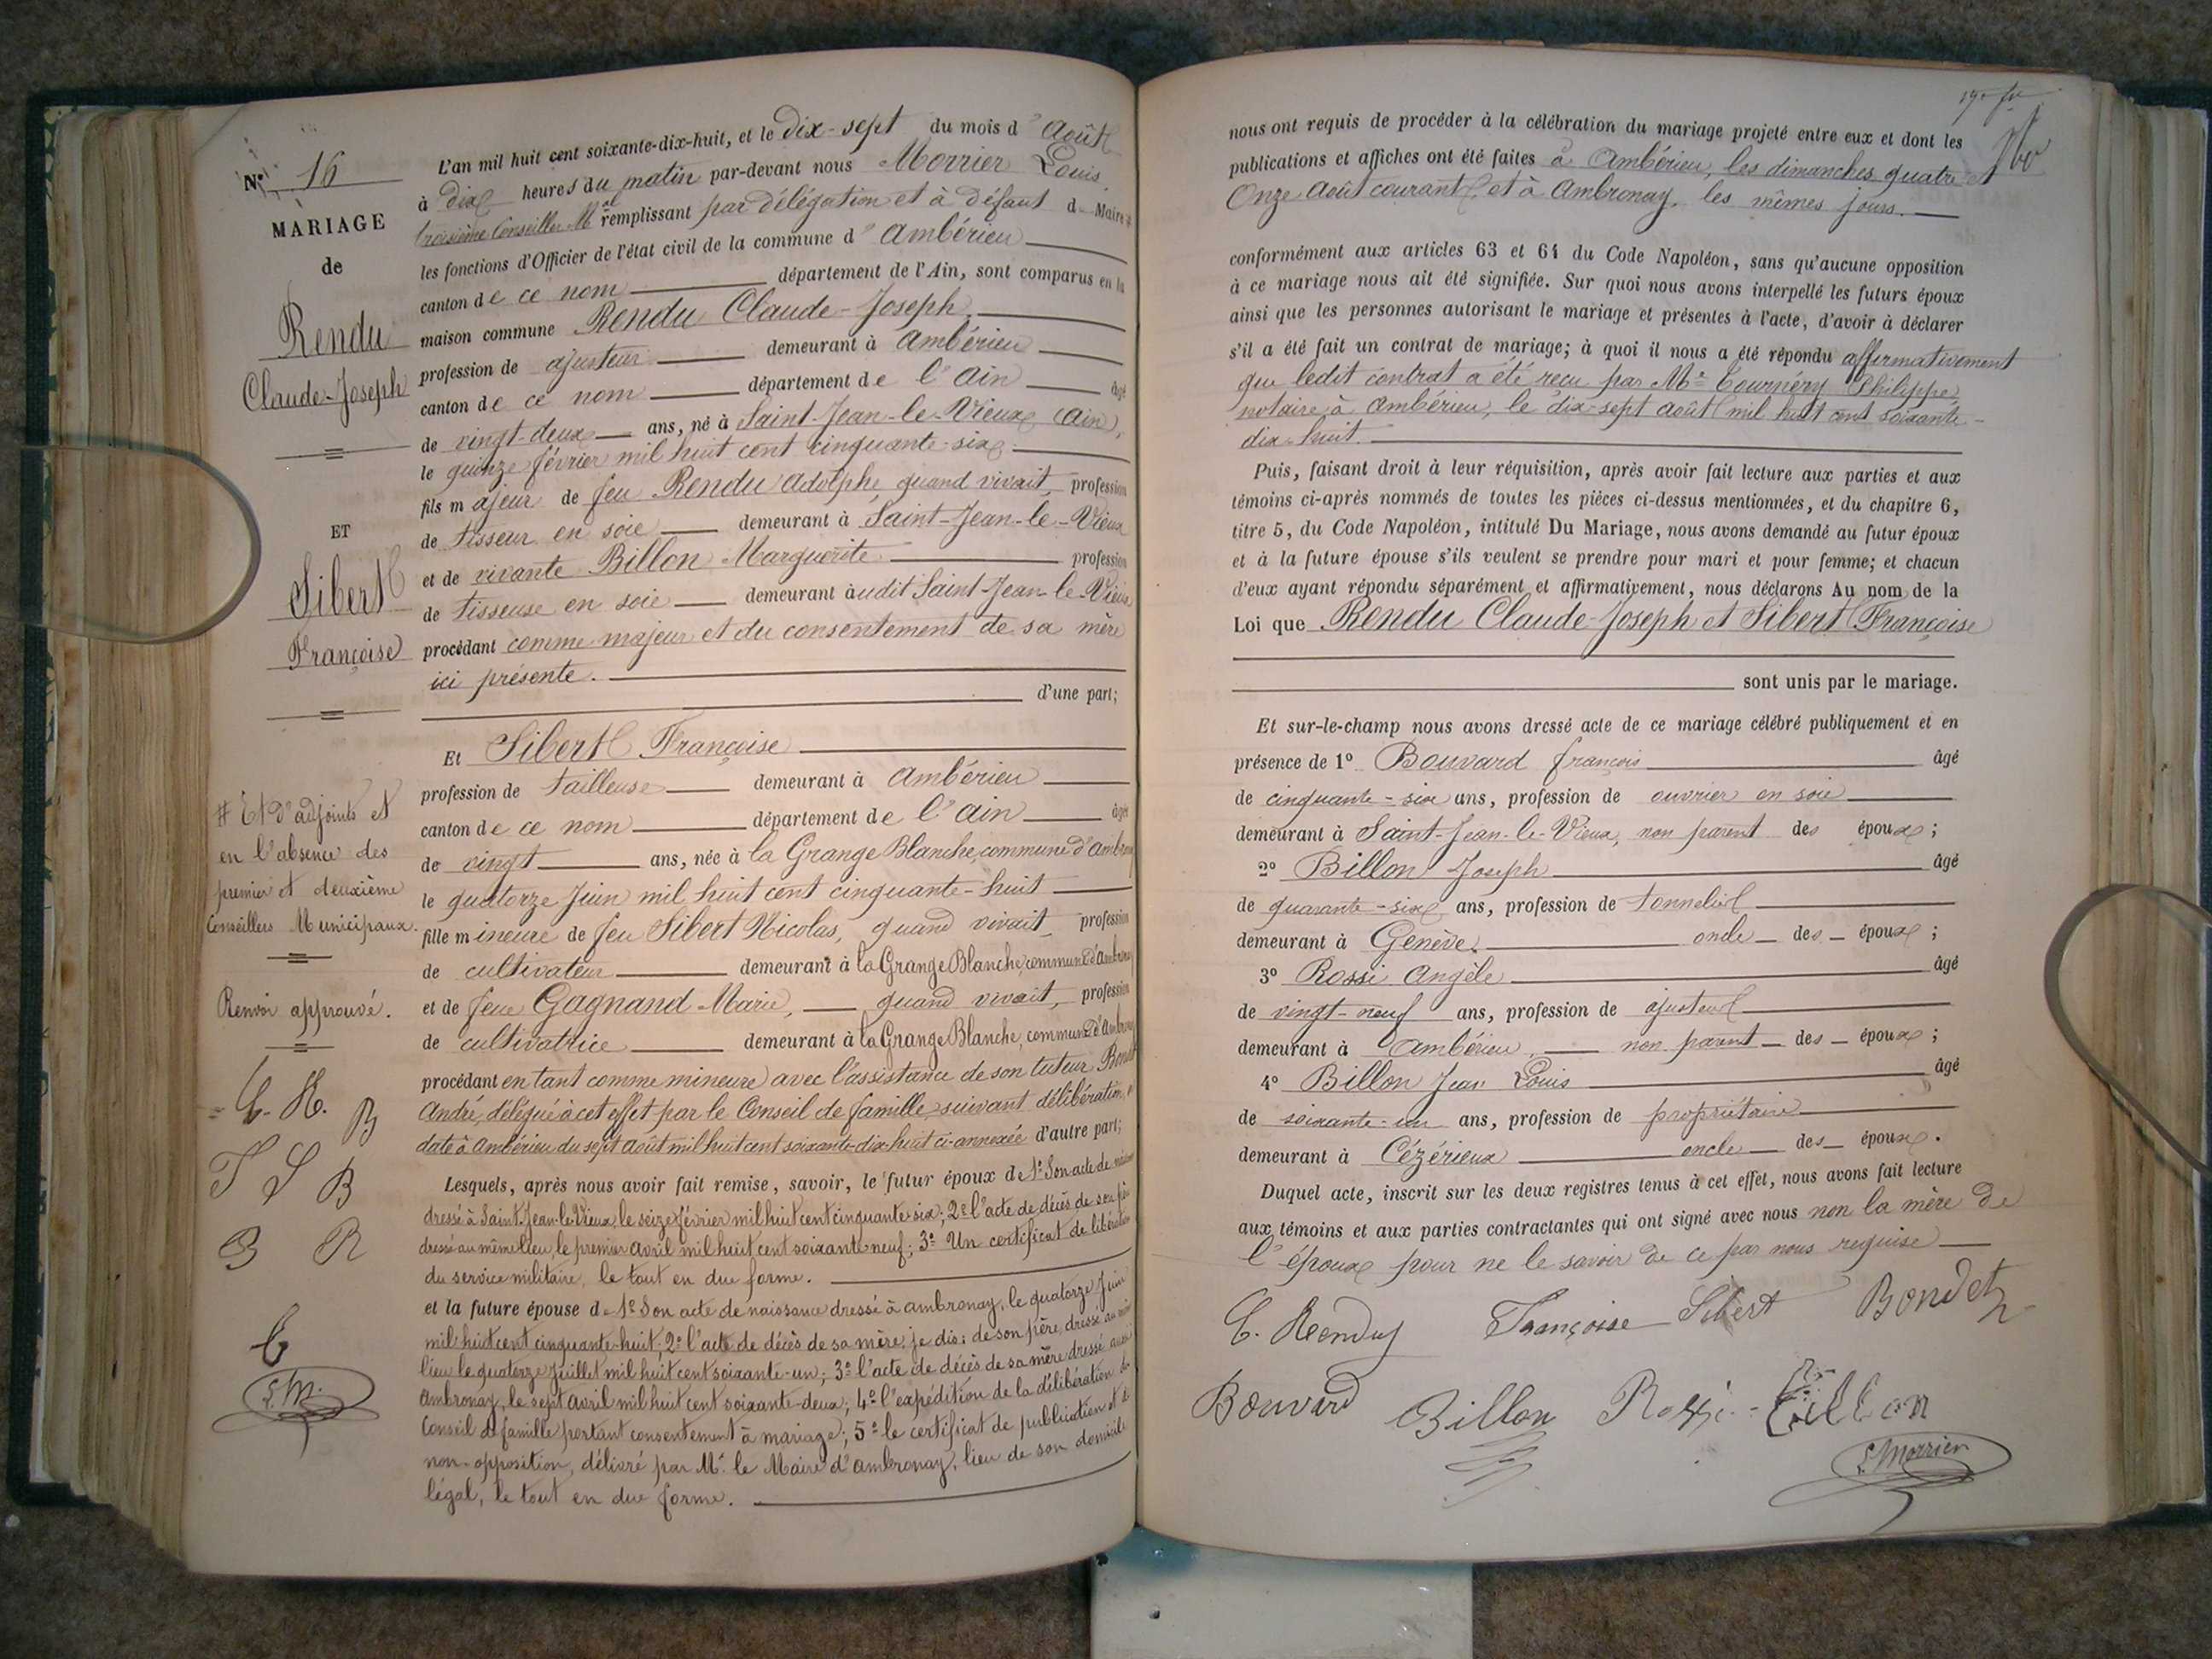 N° 16
MARIAGE
de
Rendu
Claude-Joseph
ET
Sibert
Françoise
# Et d'adjoints et
en l'absence des
premier et deuxième
Conseillers Municipaux.
Renvoi approuvé.
C. R. B
F S B
B R
B
L.M.
L'an mil huit cent soixante-dix-huit, et le dix-sept du mois d'Août
à dix heures du matin par-devant nous Morrier Louis,
troisième Conseiller Mal remplissant par délégation et à défaut d Maire #
les fonctions d'Officier de l'état civil de la commune d'Ambérieu
canton de ce nom département de l'Ain, sont comparus en la
maison commune Rendu Claude-Joseph,
profession de ajusteur demeurant à Ambérieu
canton de ce nom département de l'Ain âgé
de vingt-deux ans, né à Saint-Jean-le-Vieux (Ain),
le quinze février mil huit cent cinquante-six
fils majeur de feu Rendu Adolphe, quand vivait, profession
de tisseur en soie demeurant à Saint-Jean-le-Vieux
et de vivante Billon Marguerite profession
de tisseuse en soie demeurant audit Saint-Jean-le-Vieux
procédant comme majeur et du consentement de sa mère
ici présente.
d'une part;
Et Sibert Françoise
profession de tailleuse demeurant à Ambérieu
canton de ce nom département de l'Ain âgée
de vingt ans, née à la Grange Blanche, commune d'Ambronay
le quatorze Juin mil huit cent cinquante-huit
fille mineure de feu Sibert Nicolas, quand vivait, profession
de cultivateur demeurant à la Grange Blanche, commune d'Ambronay
et de feue Gagnand Marie, quand vivait, profession
de cultivatrice demeurant à la Grange Blanche, commune d'Ambronay
procédant en tant comme mineure avec l'assistance de son tuteur Bondet
André, délégué à cet effet par le Conseil de famille suivant délibération en
date à Ambérieu du sept Août mil huit cent soixante-dix-huit ci-annexée d'autre part;
Lesquels, après nous avoir fait remise, savoir, le futur époux de 1° Son acte de naissance
dressé à Saint-Jean-le-Vieux, le seize février mil huit cent cinquante six; 2° l'acte de décès de son père
dressé au même lieu, le premier avril mil huit cent soixante neuf; 3° Un certificat de libération
du service militaire, le tout en due forme.
et la future épouse de 1° Son acte de naissance dressé à Ambronay, le quatorze Juin
mil huit cent cinquante-huit; 2° l'acte de décès de sa mère, je dis: de son père, dressé au même
lieu le quatorze Juillet mil huit cent soixante-un; 3° l'acte de décès de sa mère dressé aussi
Ambronay, le sept avril mil huit cent soixante-deux; 4° l'expédition de la délibération du
Conseil de famille portant consentement à mariage; 5° le certificat de publication et de
non-opposition, délivré par Mr le Maire d'Ambronay, lieu de son domicile
légal, le tout en due forme.
nous ont requis de procéder à la célébration du mariage projeté entre eux et dont les
publications et affiches ont été faites à Ambérieu, les dimanches quatre et
Onze Août courant, et à Ambronay, les mêmes jours.
conformément aux articles 63 et 64 du Code Napoléon, sans qu'aucune opposition
à ce mariage nous ait été signifiée. Sur quoi nous avons interpellé les futurs époux
ainsi que les personnes autorisant le mariage et présentes à l'acte, d'avoir à déclarer
s'il a été fait un contrat de mariage; à quoi il nous a été répondu affirmativement
que ledit contrat a été reçu par Me Tournéry Philippe,
notaire à Ambérieu, le dix-sept Août mil huit cent soixante-
dix-huit.
Puis, faisant droit à leur réquisition, après avoir fait lecture aux parties et aux
témoins ci-après nommés de toutes les pièces ci-dessus mentionnées, et du chapitre 6,
titre 5, du Code Napoléon, intitulé Du Mariage, nous avons demandé au futur époux
et à la future épouse s'ils veulent se prendre pour mari et pour femme; et chacun
d'eux ayant répondu séparément et affirmativement, nous déclarons Au nom de la
Loi que Rendu Claude-Joseph et Sibert Françoise
sont unis par le mariage.
Et sur-le-champ nous avons dressé acte de ce mariage célébré publiquement et en
présence de 1° Bouvard françois âgé
de cinquante-six ans, profession de ouvrier en soie
demeurant à Saint-Jean-le-Vieux, non parent des époux;
2° Billon Joseph âgé
de quarante-six ans, profession de tonnelier
demeurant à Genève. oncle des époux;
3° Rossi Angèle âgé
de vingt-neuf ans, profession de ajusteur
demeurant à Ambérieu, non parent des époux;
4° Billon Jean Louis âgé
de soixante-un ans, profession de propriétaire
demeurant à Cézérieux oncle des époux.
Duquel acte, inscrit sur les deux registres tenus à cet effet, nous avons fait lecture
aux témoins et aux parties contractantes qui ont signé avec nous non la mère de
l'époux pour ne le savoir de ce par nous requise
C. Rendu Françoise Sibert Bondet
Bouvard Billon Rossi Billon
L. Morrier